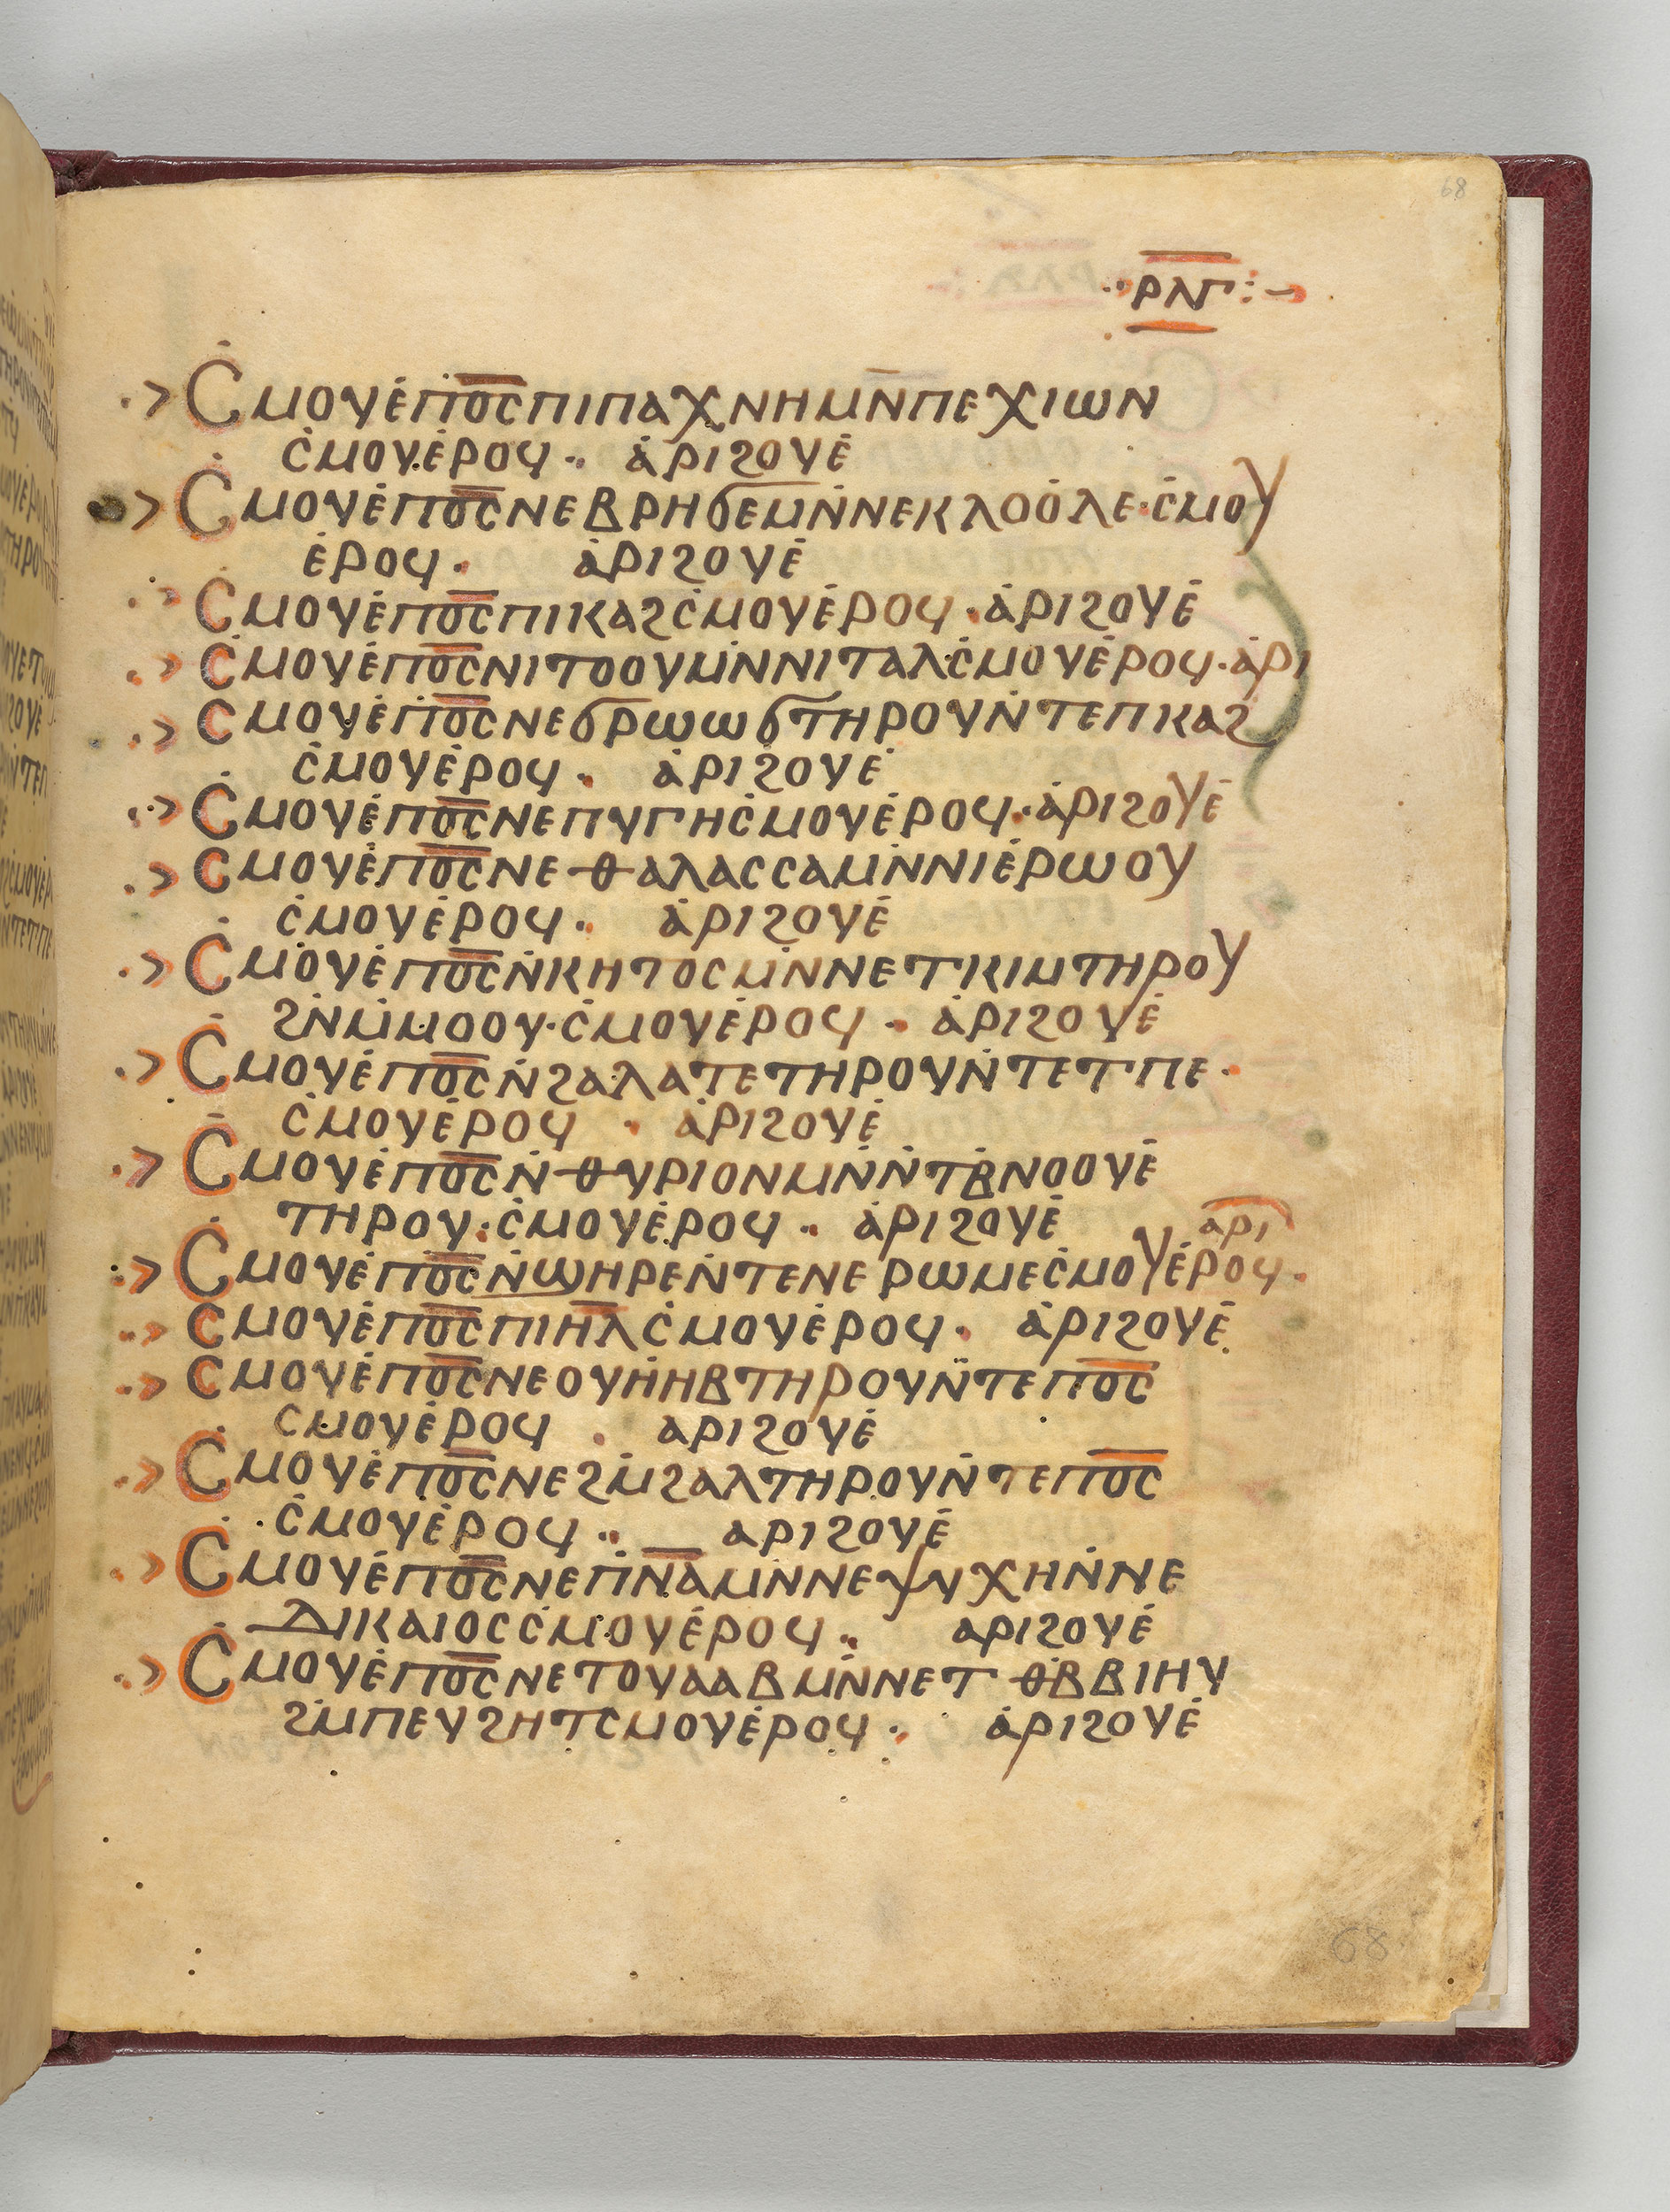 68
ⲣⲗⲅ
Ⲥ̇ⲙⲟⲩⲉ̇ⲡⲟ̅ⲥ̅ⲡⲓⲡⲁⲭⲛⲏⲙⲛ̅ⲡⲉⲭⲓⲱⲛ
ⲥ̇ⲙⲟⲩⲉ̇ⲣⲟϥ· ⲁ̇ⲣⲓϩⲟⲩⲉ̇
Ⲥ̇ⲙⲟⲩⲉ̇ⲡⲟ̅ⲥ̅ⲛⲉⲃⲣⲏϭⲉⲙⲛ̇ⲛⲉⲕⲗⲟⲟ̇ⲗⲉ·ⲥ̇ⲙⲟⲩ
ⲉ̇ⲣⲟϥ· ⲁ̇ⲣⲓϩⲟⲩⲉ̇
Ⲥ̇ⲙⲟⲩⲉ̇ⲡⲟ̅ⲥ̅ⲡⲓⲕⲁϩⲥ̇ⲙⲟⲩⲉ̇ⲣⲟϥ·ⲁ̇ⲣⲓϩⲟⲩⲉ̇
Ⲥ̇ⲙⲟⲩⲉ̇ⲡⲟ̅ⲥ̅ⲛⲓⲧⲟⲟⲩⲙⲛ̇ⲛⲓⲧⲁⲗⲥ̇ⲙⲟⲩⲉ̇ⲣⲟϥ·ⲁ̇ⲣⲓ
Ⲥⲙⲟⲩⲉ̇ⲡⲟ̅ⲥ̅ⲛⲉϭⲣⲱⲱϭⲧⲏⲣⲟⲩⲛ̇ⲧⲉⲡⲕⲁϩ
ⲥ̇ⲙⲟⲩⲉ̇ⲣⲟϥ· ⲁ̇ⲣⲓϩⲟⲩⲉ̇
Ⲥ̇ⲙⲟⲩⲉ̇ⲡⲟ̅ⲥ̅ⲛⲉⲡⲩⲅⲏⲥ̇ⲙⲟⲩⲉ̇ⲣⲟϥ·ⲁ̇ⲣⲓϩⲟⲩⲉ̇
Ⲥⲙⲟⲩⲉ̇ⲡⲟ̅ⲥ̅ⲛⲉⲑⲁⲗⲁⲥⲥⲁⲙⲛ̇ⲛⲓⲉ̇ⲣⲱⲟⲩ
ⲥ̇ⲙⲟⲩⲉ̇ⲣⲟϥ· ⲁ̇ⲣⲓϩⲟⲩⲉ̇
Ⲥ̇ⲙⲟⲩⲉ̇ⲡⲟ̅ⲥ̅ⲛ̇ⲕⲏⲧⲟⲥⲙⲛ̇ⲛⲉⲧⲕⲓⲙⲧⲏⲣⲟⲩ
ϩⲛ̇ⲙ̇ⲙⲟⲟⲩ·ⲥ̇ⲙⲟⲩⲉ̇ⲣⲟϥ· ⲁ̇ⲣⲓϩⲟⲩⲉ̇
Ⲥ̇ⲙⲟⲩⲉ̇ⲡⲟ̅ⲥ̅ⲛ̇ϩⲁⲗⲁⲧⲉⲧⲏⲣⲟⲩⲛ̇ⲧⲉⲧⲡⲉ·
ⲥ̇ⲙⲟⲩⲉ̇ⲣⲟϥ · ⲁ̇ⲣⲓϩⲟⲩⲉ̇
Ⲥ̇ⲙⲟⲩⲉ̇ⲡⲟ̅ⲥ̅ⲛ̇ⲑⲩⲣⲓⲟⲛⲙⲛ̇ⲛ̇ⲧⲃ̇ⲛⲟⲟⲩⲉ̇
ⲧⲏⲣⲟⲩ·ⲥ̇ⲙⲟⲩⲉ̇ⲣⲟϥ· ⲁ̇ⲣⲓϩⲟⲩⲉ̇
Ⲥ̇ⲙⲟⲩⲉ̇ⲡⲟ̅ⲥ̅ⲛ̇ϣⲏⲣⲉⲛ̇ⲧⲉⲛⲉⲣⲱⲙⲉⲥ̇ⲙⲟⲩⲉ̇ⲣⲟϥ· ⲁⲣⲓ
Ⲥⲙⲟⲩⲉ̇ⲡⲟ̅ⲥ̅ⲡⲓⲏ̅ⲗ̅ⲥ̇ⲙⲟⲩⲉ̇ⲣⲟϥ· ⲁ̇ⲣⲓϩⲟⲩⲉ̇
Ⲥⲙⲟⲩⲉ̇ⲡⲟ̅ⲥ̅ⲛⲉⲟⲩⲏ̇ⲏⲃⲧⲏⲣⲟⲩⲛ̈ⲧⲉⲡⲟ̅ⲥ̅
ⲥⲙⲟⲩⲉ̇ⲣⲟϥ · ⲁⲣⲓϩⲟⲩⲉ̇
Ⲥ̇ⲙⲟⲩⲉ̇ⲡⲟ̅ⲥ̅ⲛⲉϩⲙ̇ϩⲁⲗⲧⲏⲣⲟⲩⲛ̇ⲧⲉⲡⲟ̅ⲥ̅
·ⲥ̇ⲙⲟⲩⲉ̇ⲣⲟϥ· ⲁⲣⲓϩⲟⲩⲉ̇
Ⲥ̇ⲙⲟⲩⲉ̇ⲡⲟ̅ⲥ̅ⲛⲉⲡ̅ⲛ̅ⲁ̅ⲙⲛ̇ⲛⲉⲯⲩⲭⲏⲛ̇ⲛⲉ
ⲇⲓⲕⲁⲓⲟⲥⲥ̇ⲙⲟⲩⲉ̇ⲣⲟϥ· ⲁⲣⲓϩⲟⲩⲉ̇
Ⲥ̇ⲙⲟⲩⲉ̇ⲡⲟ̅ⲥ̅ⲛⲉⲧⲟⲩⲁⲁⲃⲙⲛ̇ⲛⲉⲧⲑⲃ̇ⲃⲓⲏⲩ
ϩⲙ̇ⲡⲉⲩϩⲏⲧⲥⲙⲟⲩⲉ̇ⲣⲟϥ· ⲁ̇ⲣⲓϩⲟⲩⲉ̇
68